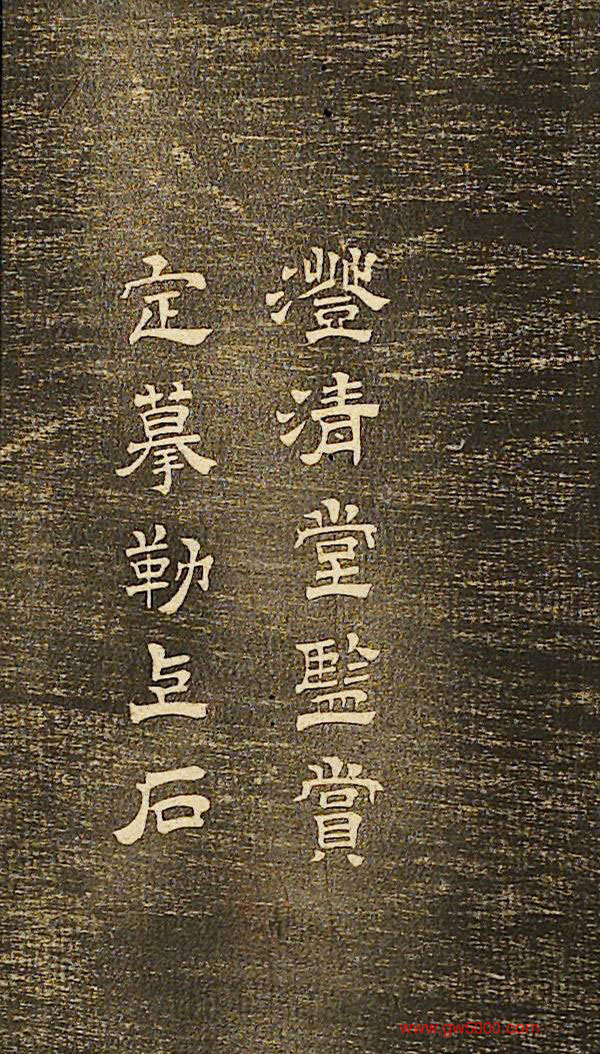 澄清堂監賞
定摹勒上石
www.gw5000.com